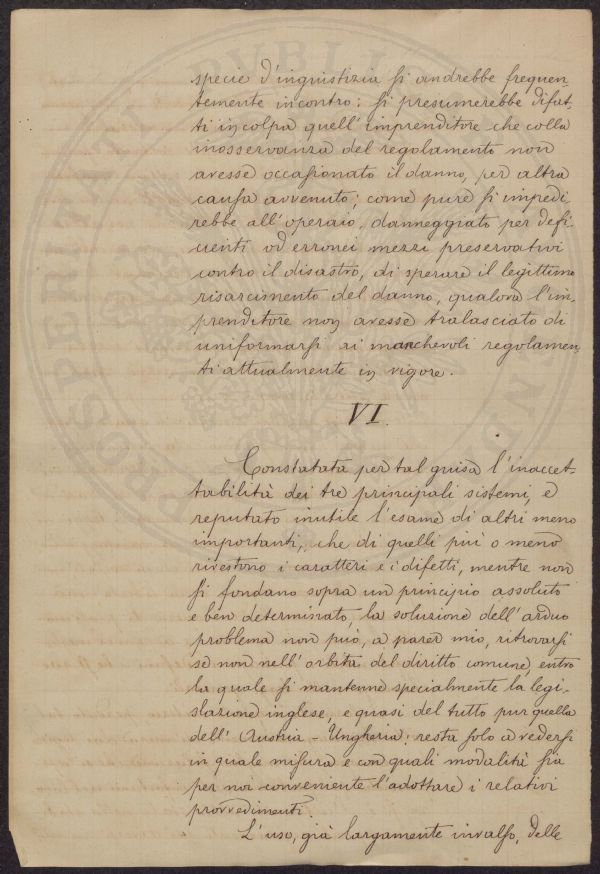 specie d'ingiustizia si andrebbe frequen-
temente incontro: si presumerebbe difat-
ti in colpa quell'imprenditore che colla
inosservanza del regolamento non
avesse occasionato il danno, per altra
causa avvenuto; come pure si impedi
rebbe all'operaio, danneggiato per defi-
cienti od erronei mezzi preservativi
contro il disastro, di sperare il legittimo
risarcimento del danno, qualora l'im-
prenditore non avesse tralasciato di
uniformarsi ai manchevoli regolamen,
ti attualmente in vigore.
VI.
Constatata per tal guisa l'inaccet-
tabilità dei tre principali sistemi, e
reputato inutile l'esame di altri meno
importanti, che di quelli più o meno
rivestono i caratteri e i difetti, mentre non
si fondano sopra un principio assoluto
e ben determinato, la soluzione dell'arduo
problema non può, a parer mio, ritrovarsi
se non nell'orbita del diritto comune, entro
la quale si mantenne specialmente la legi-
slazione inglese, e quasi del tutto pur quella
dell'Austria-Ungheria: resta solo a vedersi
in quale misura e con quali modalità sia
per noi conveniente l'adottare i relativi
provvedimenti.
L'uso, già largamente invalso, delle
PVBLICA
PROSPERITATI